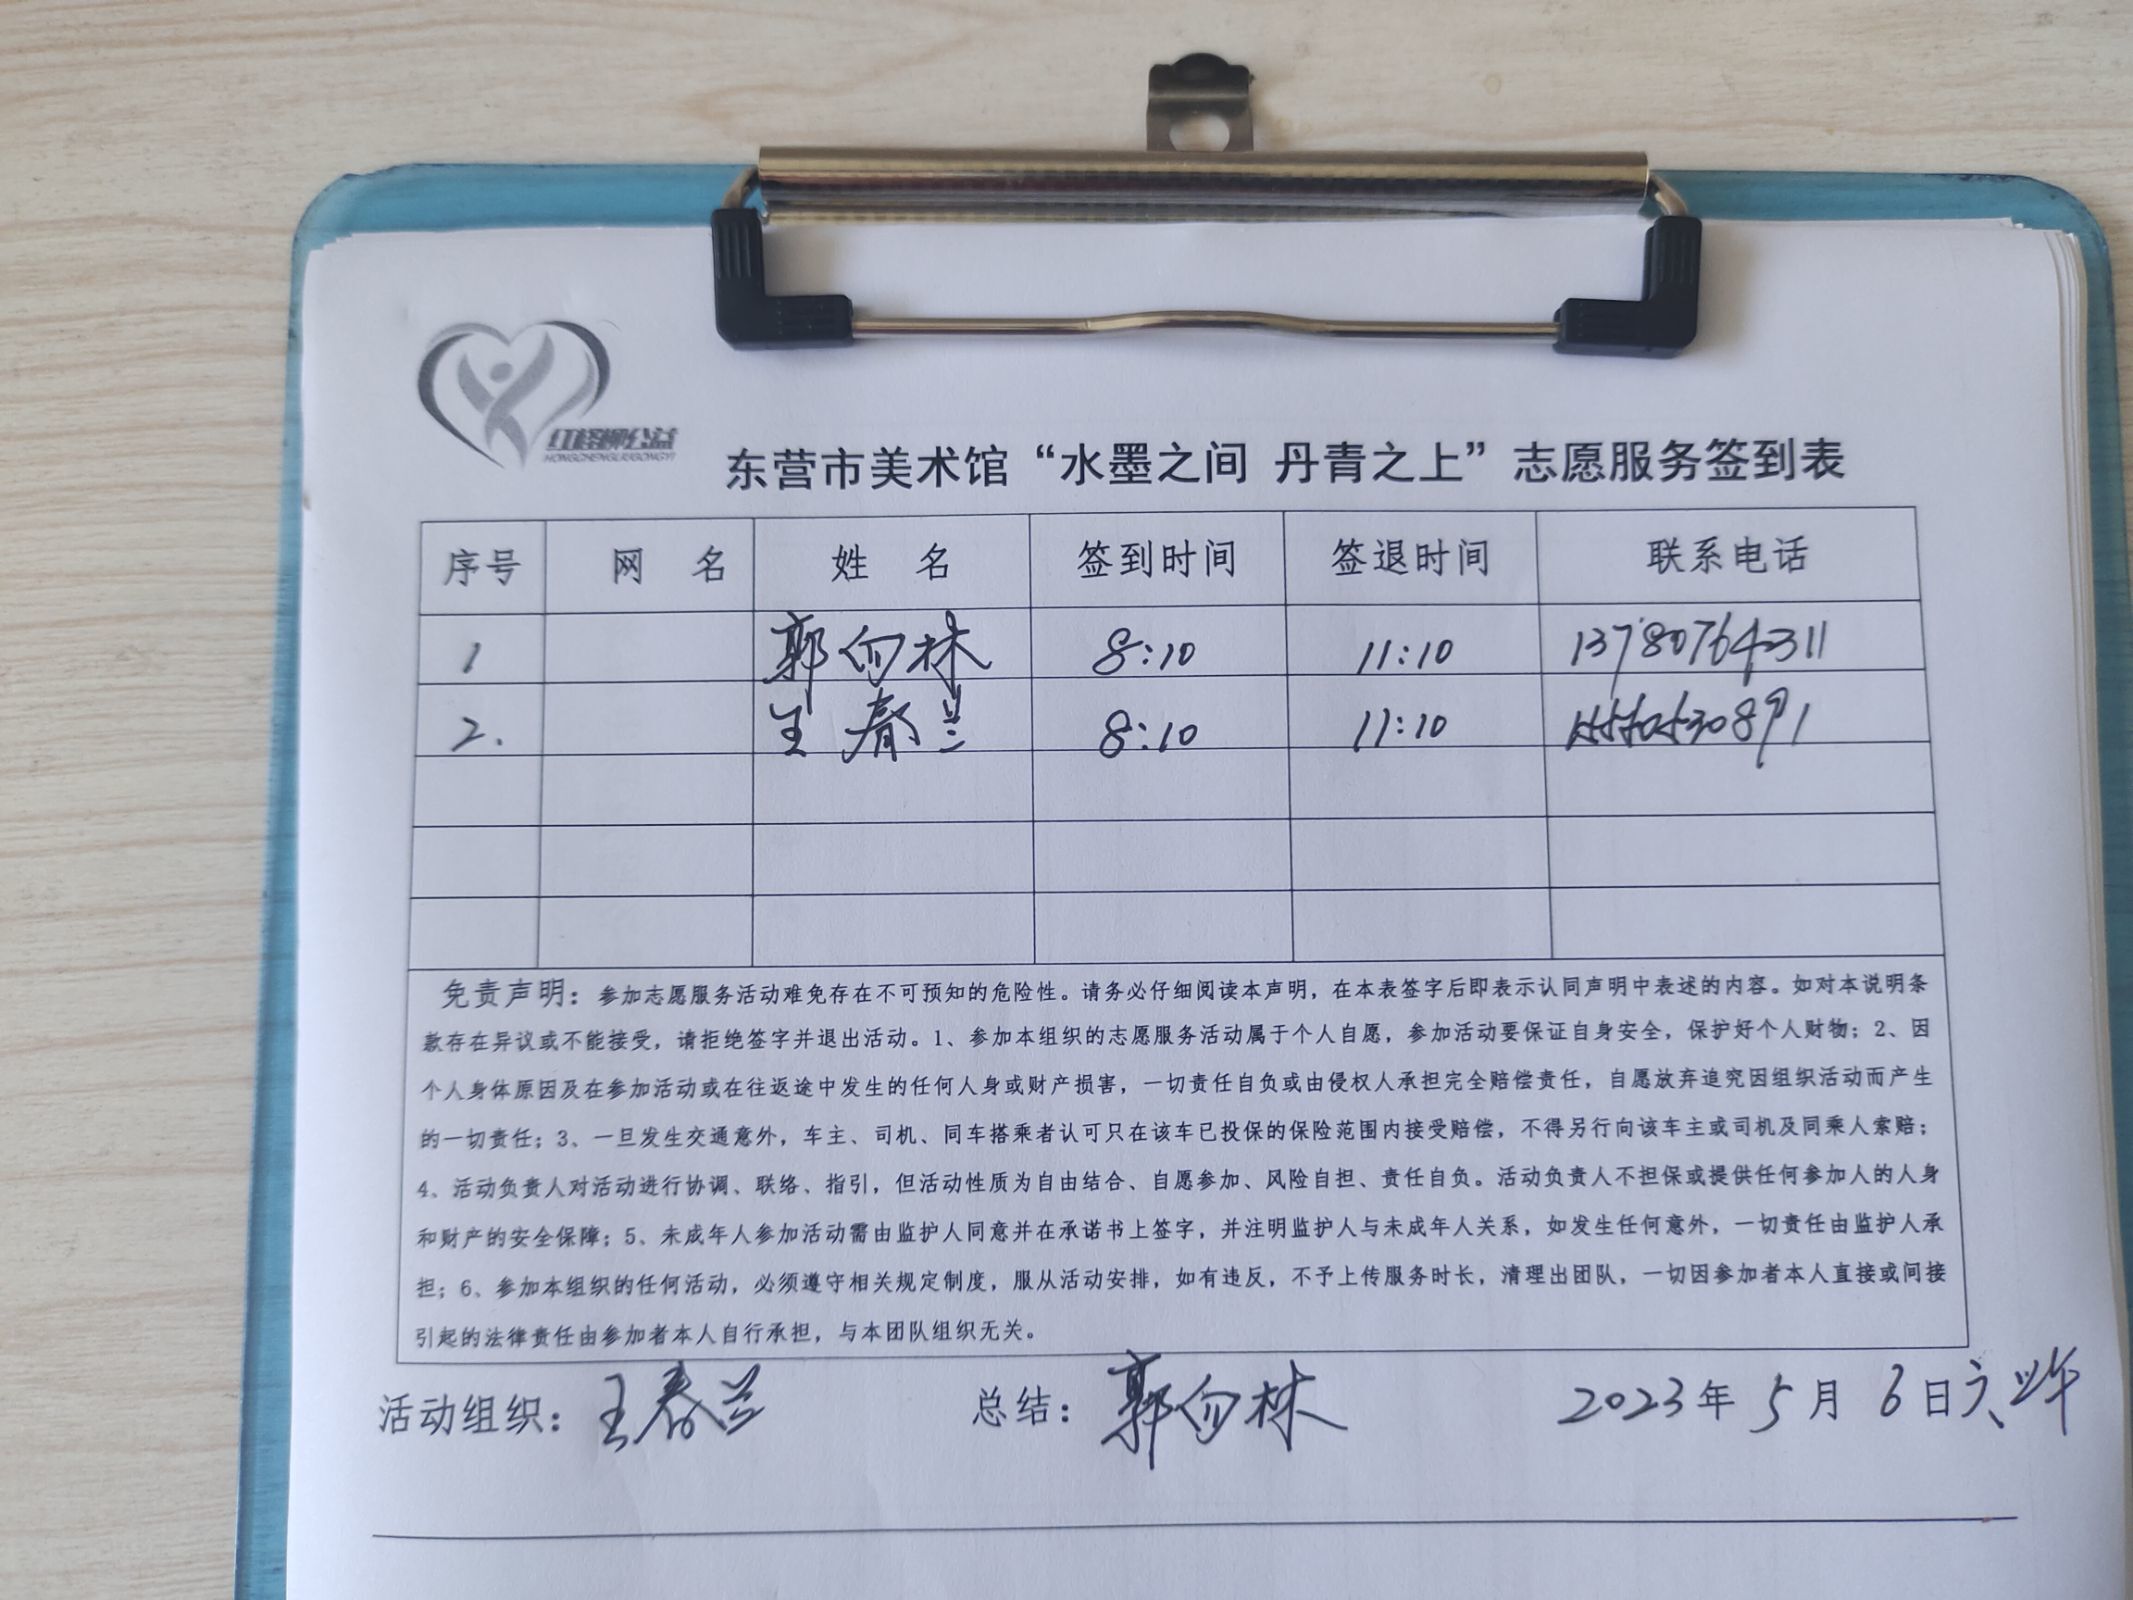 红柽柳公益
HONGCHENGLIUGONGYI
东营市美术馆“水墨之间 丹青之上”志愿服务签到表
序号 网 名 姓 名 签到时间 签退时间 联系电话
1 郭向林 8:10 11:10 13780764311
2. 王春兰 8:10 11:10
免责声明：参加志愿服务活动难免存在不可预知的危险性。请务必仔细阅读本声明，在本表签字后即表示认同声明中表述的内容。如对本说明条
款存在异议或不能接受，请拒绝签字并退出活动。1、参加本组织的志愿服务活动属于个人自愿，参加活动要保证自身安全，保护好个人财物；2、因
个人身体原因及在参加活动或在往返途中发生的任何人身或财产损害，一切责任自负或由侵权人承担完全赔偿责任，自愿放弃追究因组织活动而产生
的一切责任；3、一旦发生交通意外，车主、司机、同车搭乘者认可只在该车已投保的保险范围内接受赔偿，不得另行向该车主或司机及同乘人索赔；
4、活动负责人对活动进行协调、联络、指引，但活动性质为自由结合、自愿参加、风险自担、责任自负。活动负责人不担保或提供任何参加人的人身
和财产的安全保障；5、未成年人参加活动需由监护人同意并在承诺书上签字，并注明监护人与未成年人关系，如发生任何意外，一切责任由监护人承
担；6、参加本组织的任何活动，必须遵守相关规定制度，服从活动安排，如有违反，不予上传服务时长，清理出团队，一切因参加者本人直接或间接
引起的法律责任由参加者本人自行承担，与本团队组织无关。
活动组织：王春兰 总结：郭向林 2023年5月6日六上午